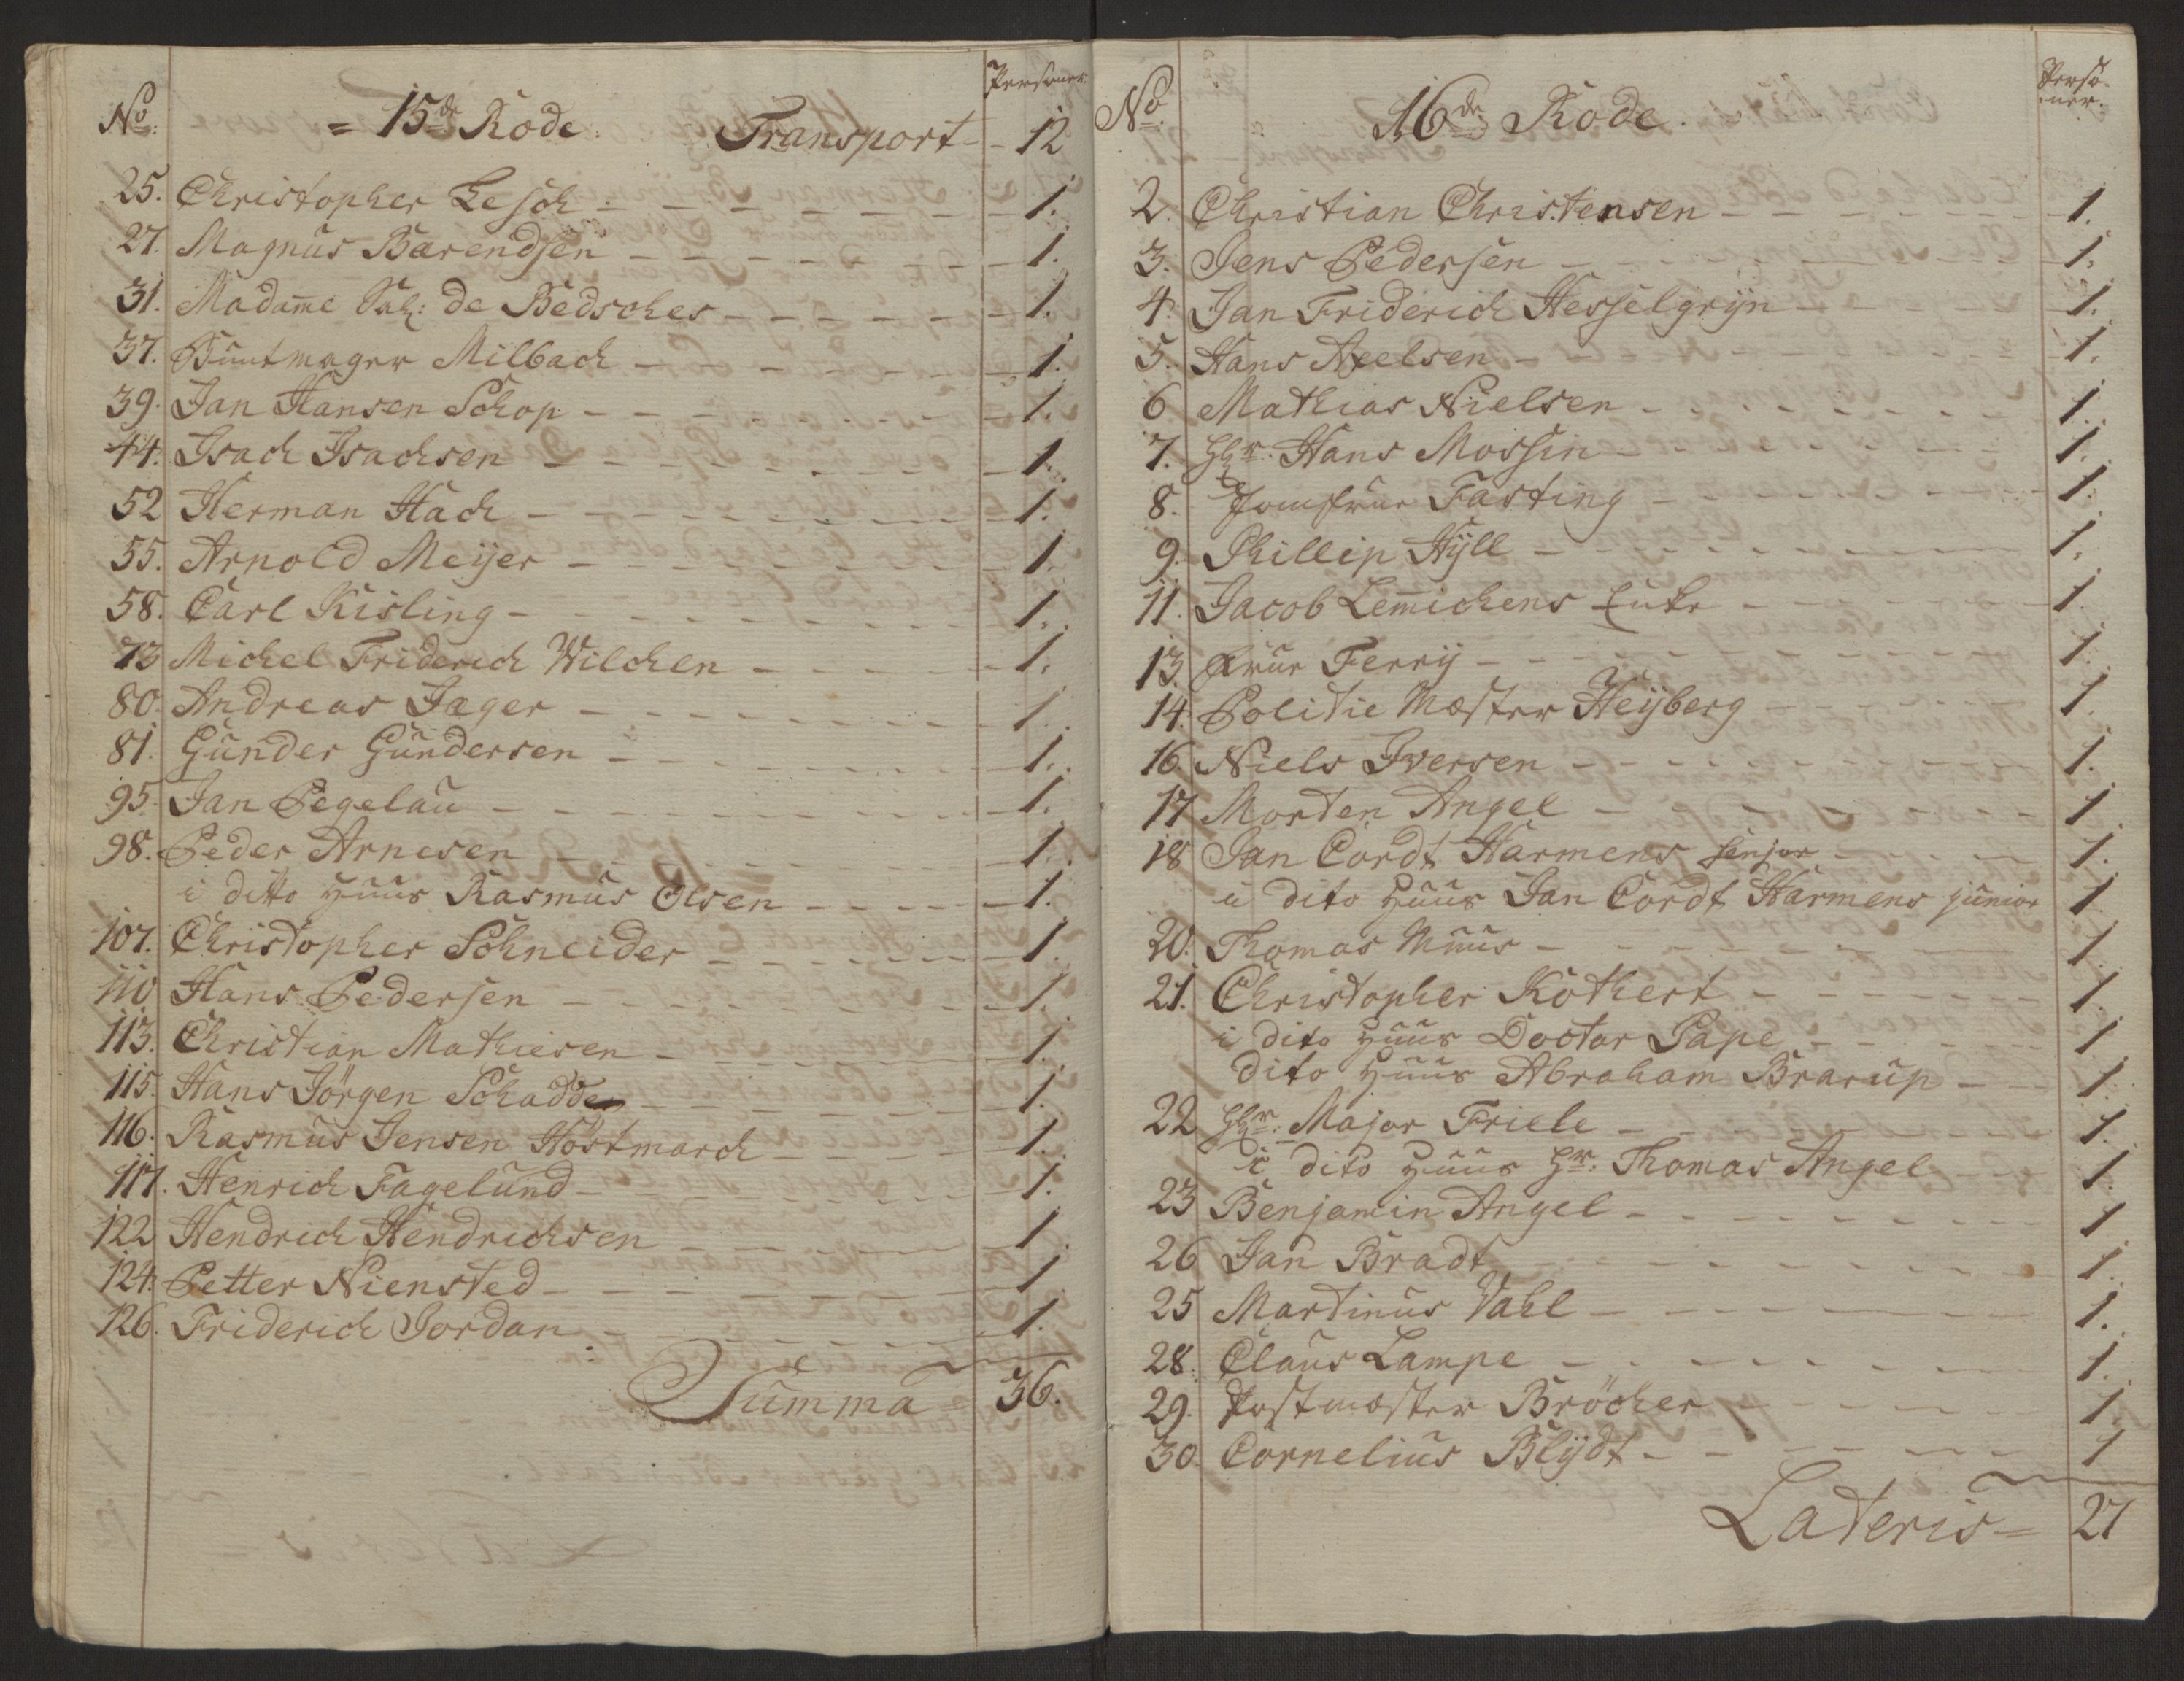 No. = 15de Rode. Personer
Transport - 12
25. Christopher Lesch - 1.
27. Magnus Barendsen - 1.
31. Madame Sal: de Bedsches - 1.
37. Buntmager Milbach - 1.
39. Jan Hansen Schop - 1.
44. Isach Isachsen - 1.
52 Herman Hach - 1.
55. Arnold Meijer - 1.
58. Carl Kisling - 1.
73 Michel Friderich Wilchen - 1.
80. Andreas Jæger - 1.
81. Gunder Gundersen - 1.
95. Jan Pegelau - 1.
98. Peder Arnesen - 1.
i ditto Huus Rasmus Olsen - 1.
107. Christopher Schneider - 1.
110 Hans Pedersen - 1.
113. Christian Mathiesen - 1.
115. Hans Jörgen Schadde - 1.
116. Rasmus Jensen Höstmarch - 1.
117. Henrich Fagelund - 1.
122 Hendrich Hendrichsen - 1.
124. Petter Niensted - 1.
126. Friderich Jordan - 1.
Summa = 36.
No. 16de Rode. Personer.
2. Christian Christensen - 1.
3. Jens Pedersen - 1.
4. Jan Friderich Hesselgrijn - 1.
5. Hans Axelsen - 1.
6 Mathias Nielsen - 1.
7. Hr. Hans Mossin - 1.
8. Jomfrue Fasting - 1.
9. Phillip Hÿll - 1.
11. Jacob Lemichens Enke - 1.
13. Frue Ferrij - 1.
14. Politie Mæster Heijberg - 1.
16. Niels Iversen - 1.
17 Morten Angel - 1.
18 Jan Cordt Harmens senior - 1.
i dito Huus Jan Cordt Harmens junior 1.
20. Thomas Muus - 1.
21. Christopher Kothert - 1.
i dito Huus Doctor Pape - 1
dito Huus Abraham Brarup - 1.
22 Hr. Major Friele - 1.
i dito Huus Hr. Thomas Angel 1.
23 Benjamin Angel - 1
26 Jan Bradt - 1.
25 Martinus Vahl - 1.
28. Claus Lampe - 1.
29. Postmæster Bröcher - 1.
30. Cornelius Blijdt - 1
Lateris = 27